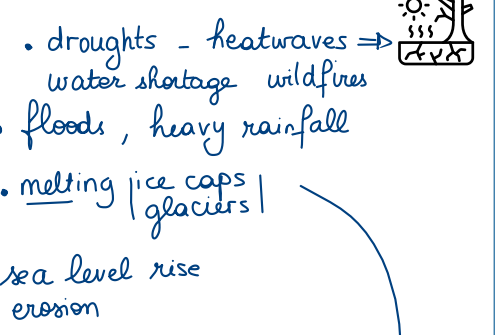 • droughts - heatwaves ⇒
water shortage wildfires
• floods, heavy rainfall
• melting |ice caps
glaciers|
sea level rise
erosion